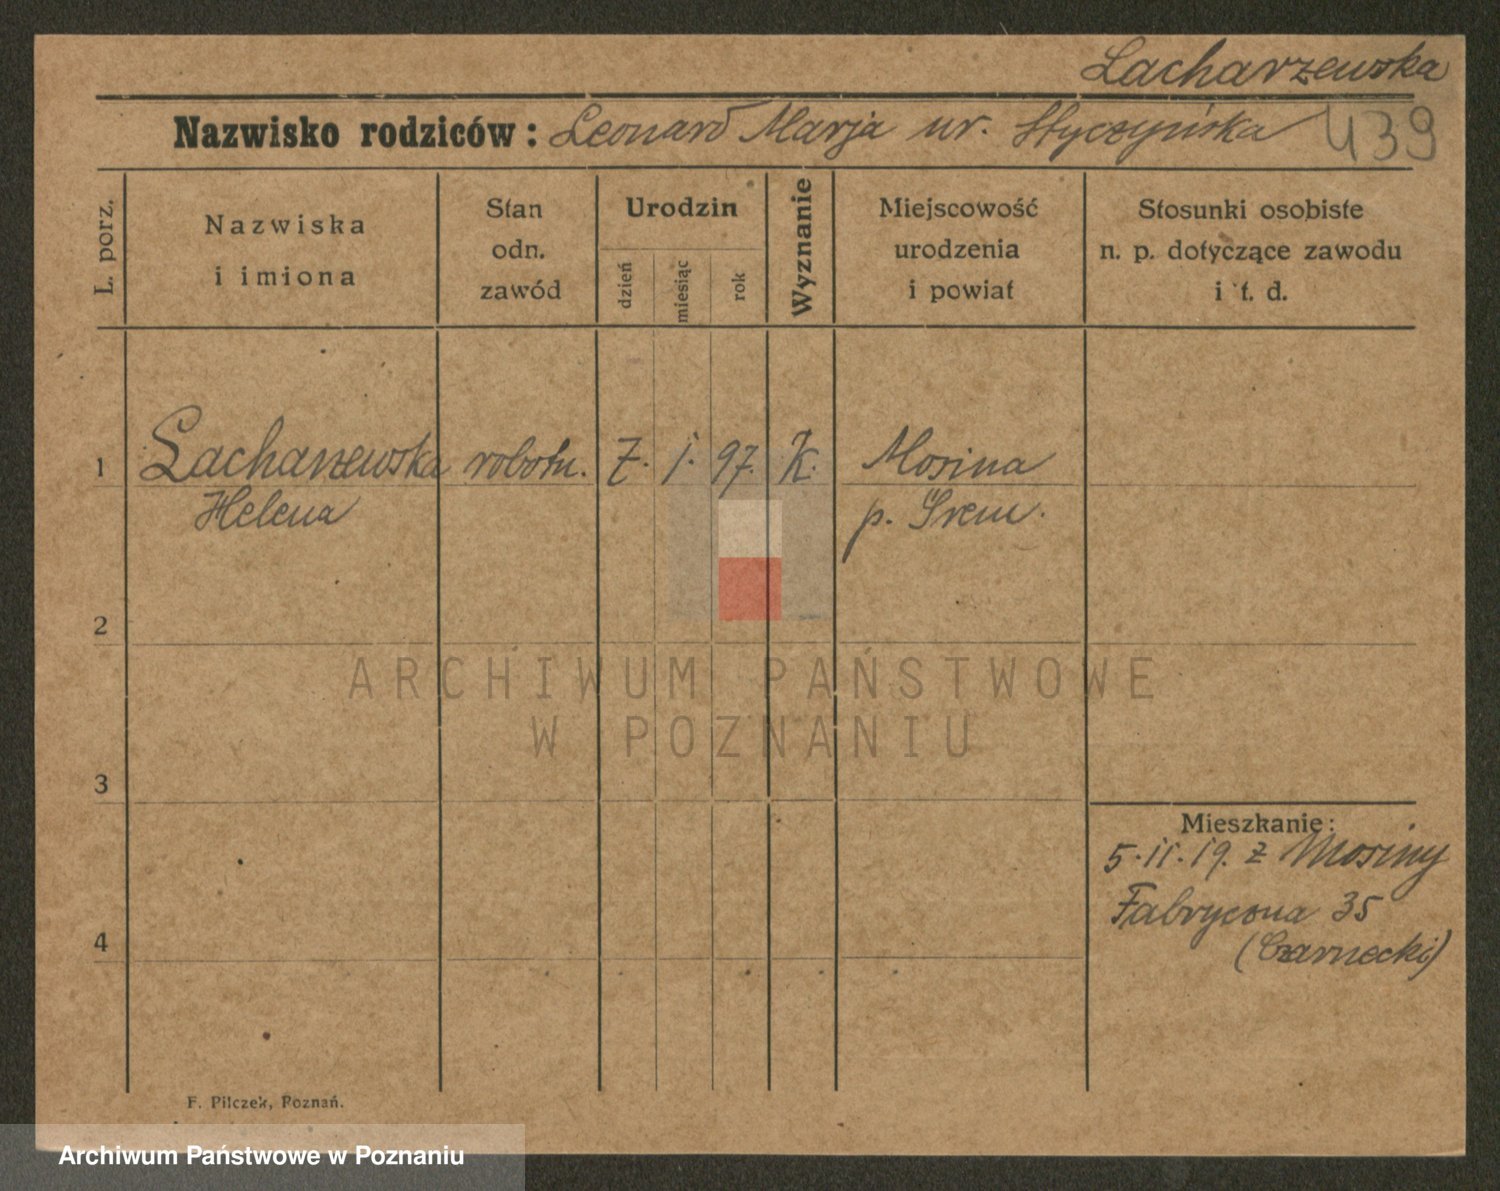 Lacharzewska
Nazwisko rodziców: Leonard Marja ur. Styczyńska 439
L. porz.
Nazwiska
i imiona
Stan
odn.
zawód
Urodzin
dzień
miesiąc
rok
Wyznanie
Miejscowość
urodzenia
i powiat
Stosunki osobiste
n. p. dotyczące zawodu
i t. d.
1 Lacharzewska robotn. 7. 1. 97. K. Mosina
Helena p. Śrem.
2
ARCHIWUM PAŃSTWOWE
W POZNANIU
3
Mieszkanie:
5.11.19. z Mosiny
Fabryczna 35
4 (Czarnecki)
F. Pilczek, Poznań.
Archiwum Państwowe w Poznaniu